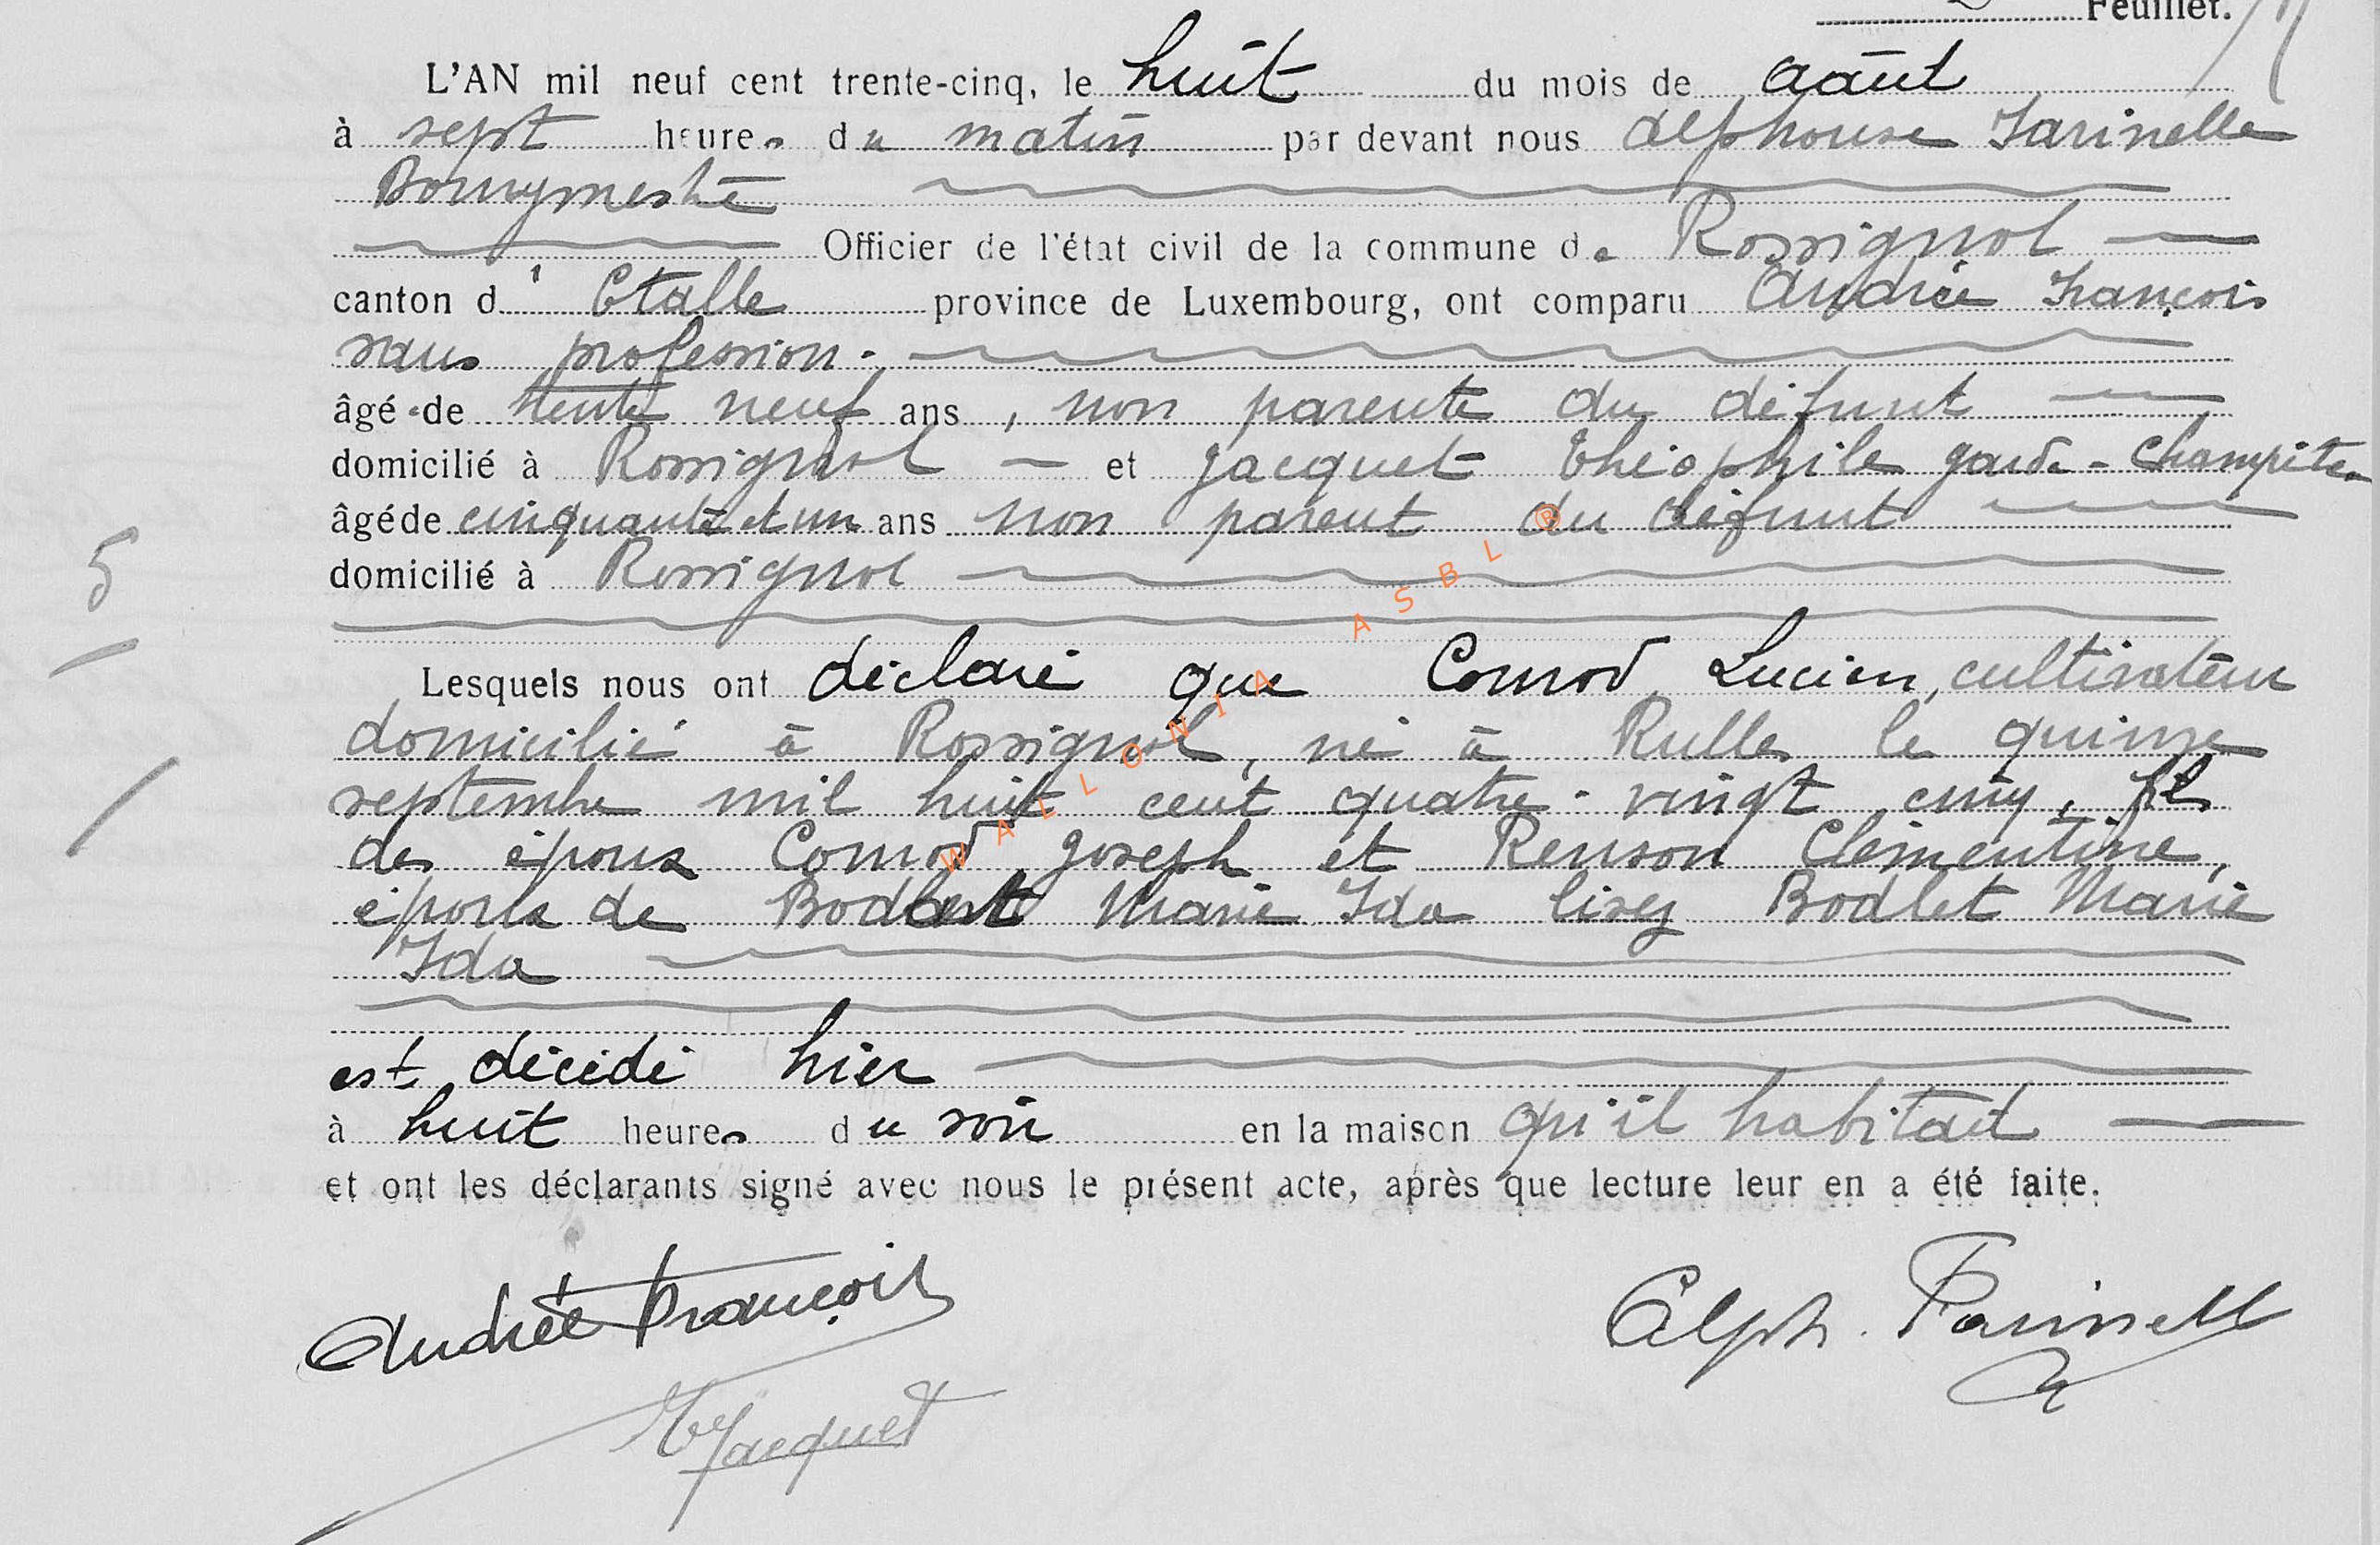 Feuillet.
L'AN mil neuf cent trente-cinq, le huit du mois de août
à sept heures du matin par devant nous Alphonse Farinelle
Bourgmestre
Officier de l'état civil de la commune de Rossignol
canton d' Etalle province de Luxembourg, ont comparu Andrée François
sans profession.
âgé de trente neuf ans, non parente du défunt
domicilié à Rossignol et Jacquet Théophile garde-champêtre
âgé de cinquante et un ans non parent du défunt
domicilié à Rossignol
5
Lesquels nous ont déclaré que Comod Lucien, cultivateur
domicilié à Rossignol, né à Rulles le quinze
septembre mil huit cent quatre-vingt cinq, fils
des époux Comod Joseph et Renson Clémentine,
époux de Marie Ida lisez Bodlet Marie
Ida
est décédé hier
à huit heures du soir en la maison qu'il habitait
et ont les déclarants signé avec nous le présent acte, après que lecture leur en a été faite.
Andrée François
Alph. Farinelle
Jacquet
WALLONIA ASBL ®